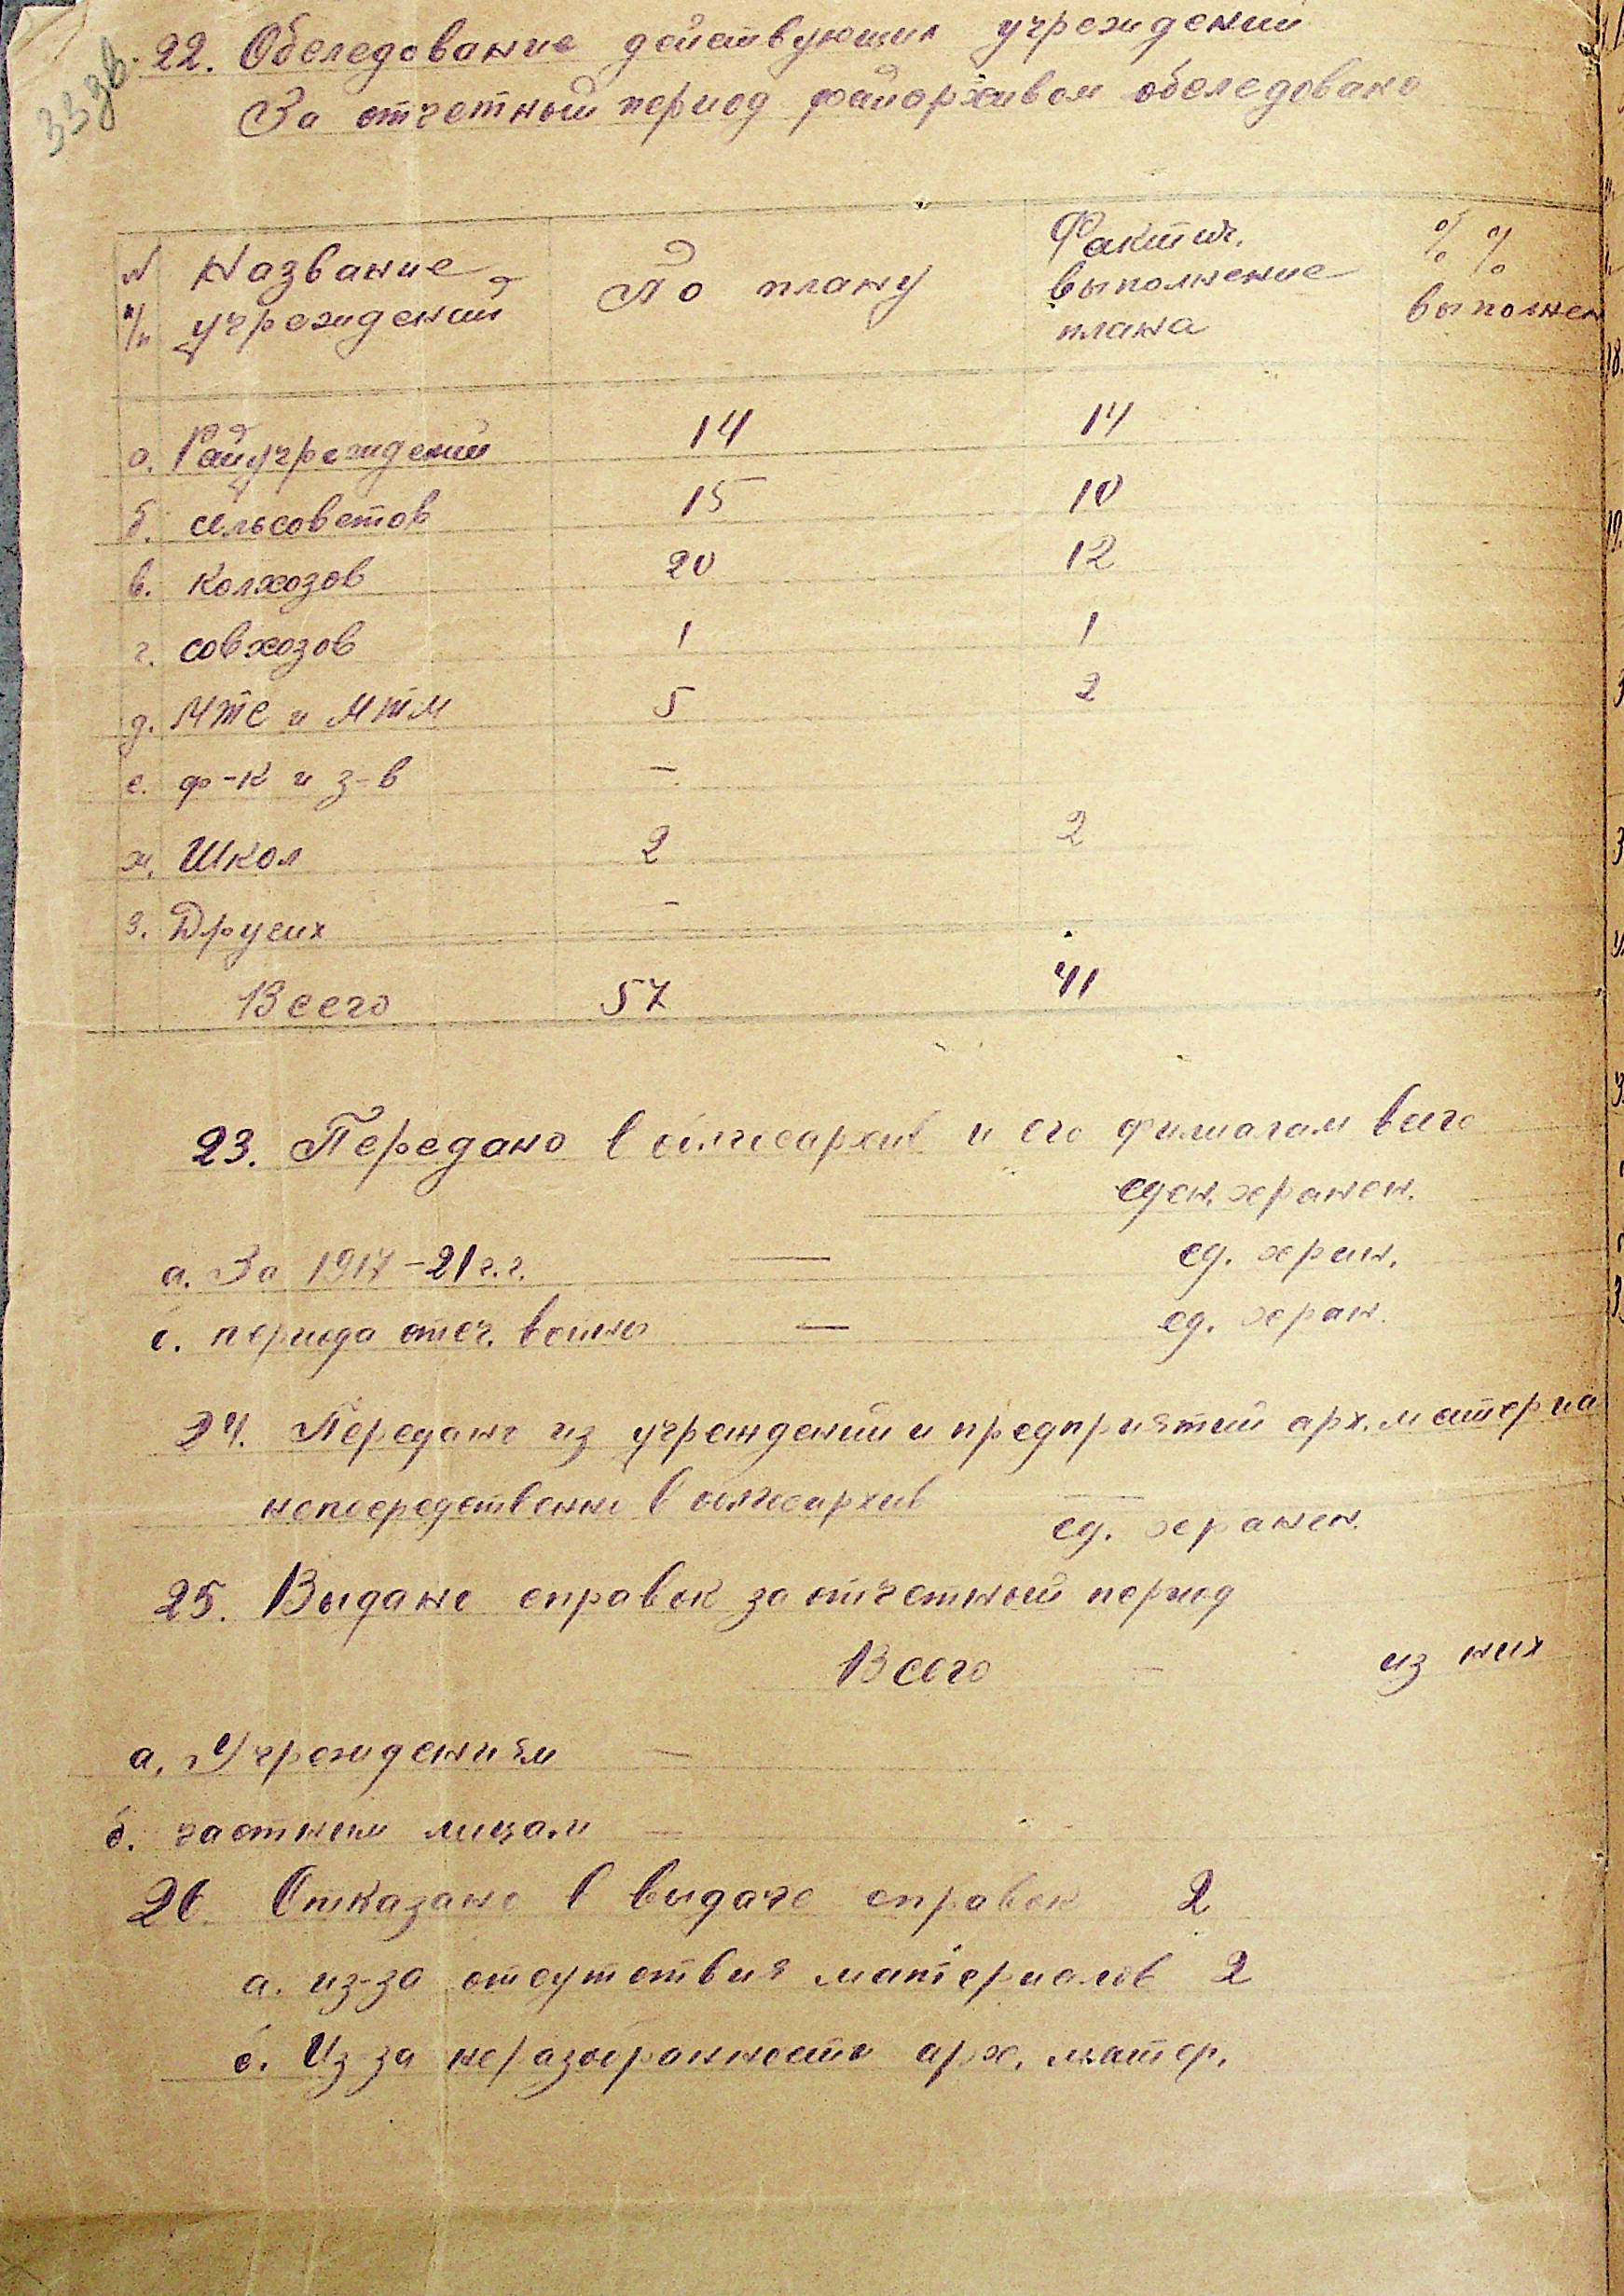 33 об.
22. Обследование действующих учреждений
За отчетный период райархивом обследовано
№ п/п Название учреждений По плану Фактич. выполнение плана % % выполнен
а. Райучреждений 14 14
б. сельсоветов 15 10
в. колхозов 20 12
г. совхозов 1 1
д. МТС и МТМ 5 2
е. ф-к и з-в —
ж. Школ 2 2
з. Других -
Всего 57 41
23. Передано в облгосархив и его филиалам всего
еден. хранен.
а. За 1917-21 г.г. — ед. хран.
б. периода отеч. войны — ед. хран.
24. Передано из учреждений и предприятий арх. материа
непосредственно в облгосархив — ед. хранен.
25. Выдано справок за отчетный период
Всего — из них
а. Учреждениям —
б. частным лицам —
26. Отказано в выдаче справок 2
а. из-за отсутствия материалов 2
б. Из-за неразобранности арх. матер.